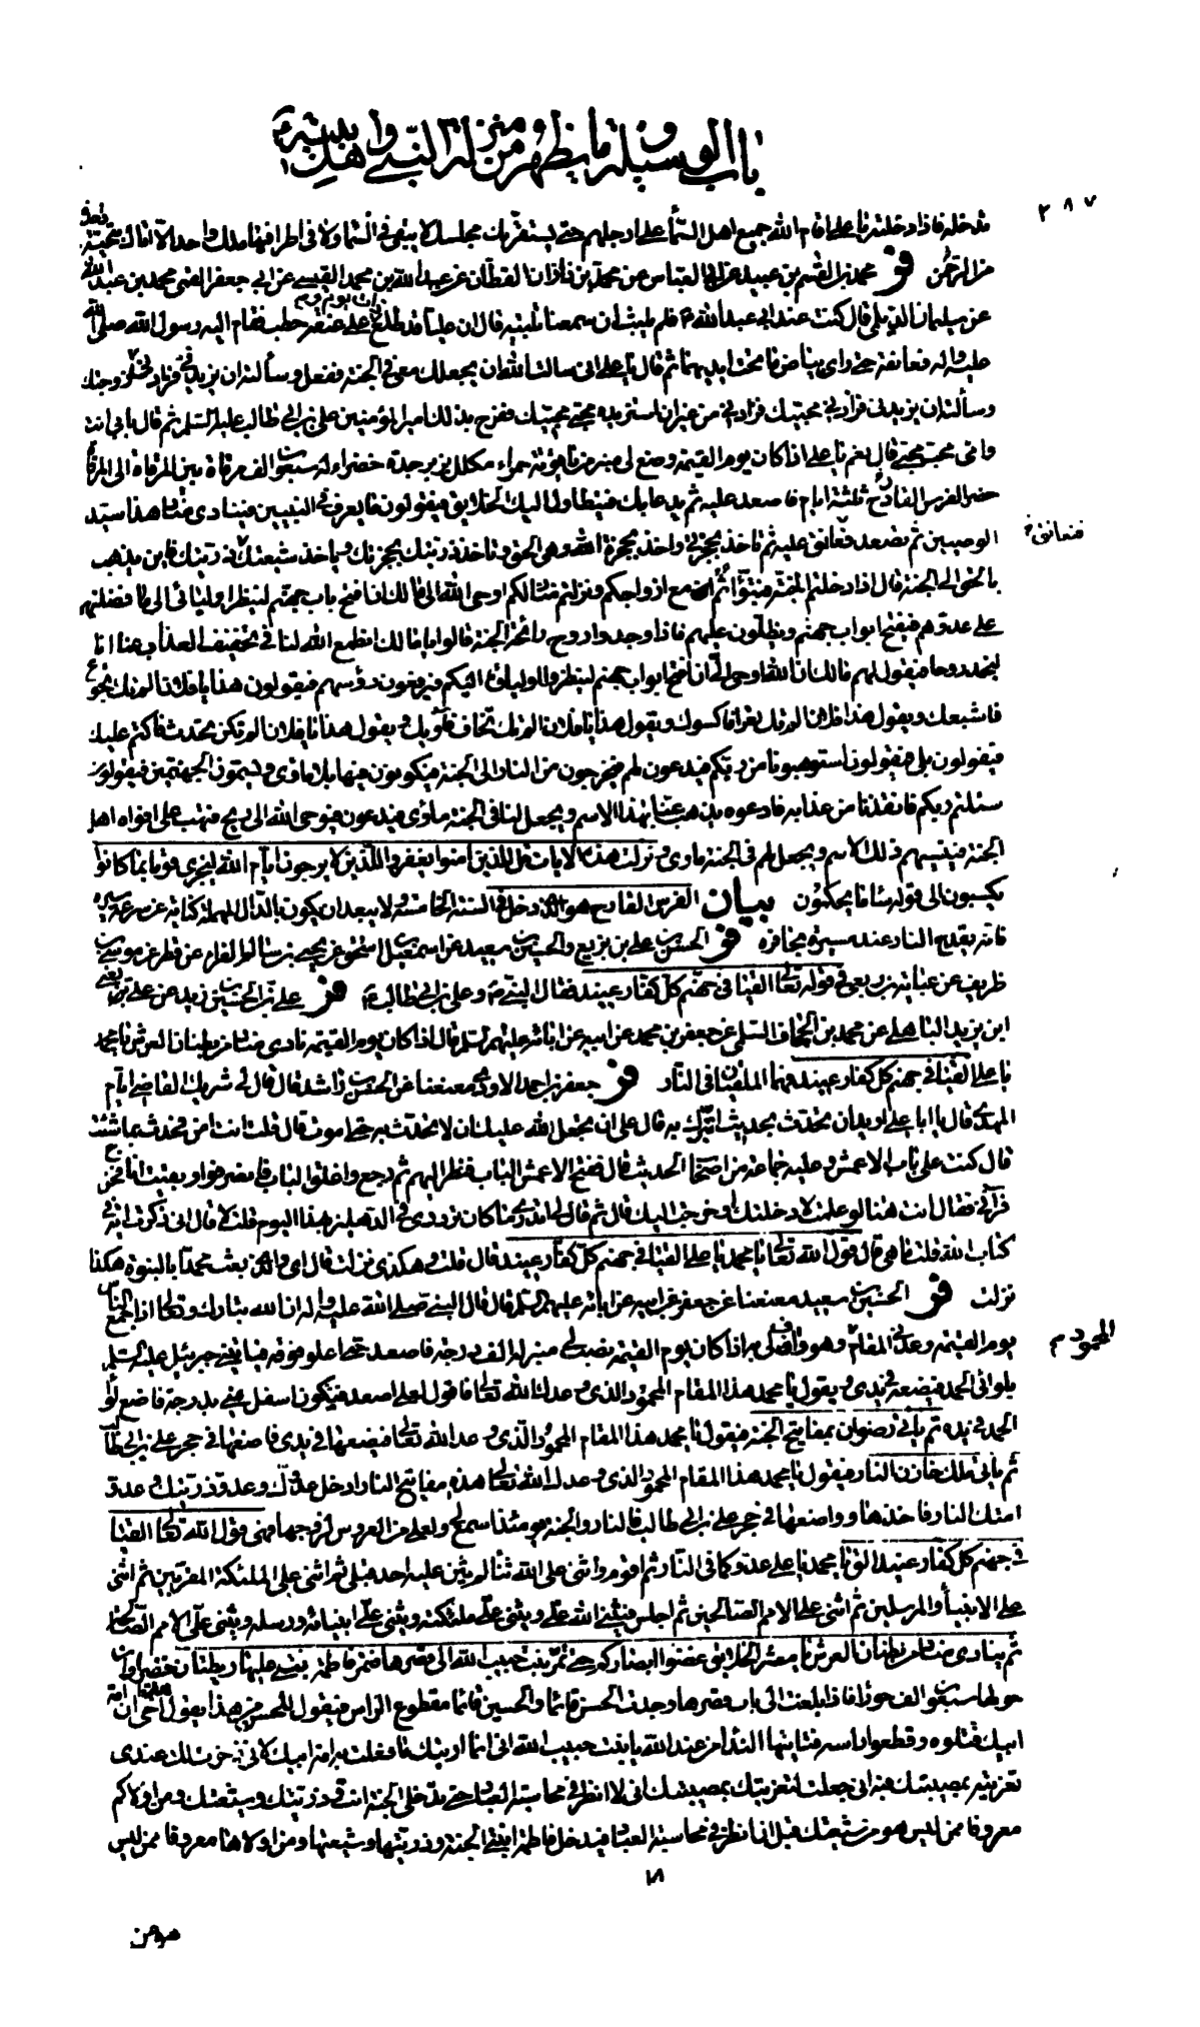 باب الوسيلة وما يظهر من منزلة النبي واهل بيته
٢٨٧
تدخله فاذا دخلته يا على اقام الله جميع اهل السماء على ارجلهم حتى يستقر بك مجلسك لا يبقى فى السماء ولا فى اطرافها ملك واحد الا اتاك بتحية
من الرحمن فر محمد بن القسم بن عبيد عن ابى العباس عن محمد بن ذاذان القطان عن عبد الله بن محمد القيسى عن ابى جعفر القمى محمد بن عبد الله
عن سليمان الديلمى قال كنت عند ابى عبد الله فلم يلبث ان سمعنا تلبية قال ان عليا قد طلع على عنقه حطب فقام اليه رسول الله صلى الله
عليه واله فعانقه حتى راى بياض ما تحت ايديهما ثم قال يا على انى سالت الله ان يجعلك معى فى الجنة ففعل وسألته ان يزيدنى فزادنى زوجتك
وسألته ان يزيدنى فزادنى محبيك فزادنى من غير ان استزيده محبى محبيك ففرح بذلك امير المؤمنين على بن ابى طالب عليه السلم ثم قال بابى انت
وامى محب محبى قال نعم يا على اذا كان يوم القيمة وضع لى منبر من ياقوتة حمراء مكلل بزبرجدة خضراء له سبعون الف مرقاة بين المرقاة الى المرقاة
حضر الفرس القارح ثلثة ايام فاصعد عليه ثم يدعا بك فيتطاول اليك الخلايق فيقولون ما يعرف فى النبيين فينادى مناد هذا سيد
الوصيين ثم تصعد فتعانق عليه ثم تاخذ بحجزتى واخذ بحجزة الله وهى الحق وتاخذ ذريتك بحجزتك وياخذ شيعتك بحجزة ذريتك فاين يذهب
بالحق الى الجنة قال اذا دخلتم الجنة فتبوأتم مع ازواجكم ونزلتم منازلكم اوحى الله الى مالك ان افتح باب جهنم لينظر اوليائى الى ما فضلتهم
على عدوهم فيفتح ابواب جهنم ويطلون عليهم فاذا وجدوا روح رائحة الجنة قالوا يا مالك اتطمع الله لنا فى تخفيف العذاب عنا انا
لنجد روحا فيقول لهم مالك ان الله اوحى الى ان افتح ابواب جهنم لينظر اولياؤه اليكم فيرفعون رؤسهم فيقولون هذا يا فلان الم تك تجوع
فاشبعك ويقول هذا فلان الم تك تعرا فاكسوك ويقول هذا يا فلان الم تك تخاف فاويك ويقول هذا يا فلان الم تكن تحدث فاكتم عليك
فيقولون بلى فيقولون استوهبونا من ربكم فيدعون لهم فيخرجون من النار الى الجنة فيكونون فيها بلا ماوى ويسمون الجهنميين فيقولون
سئلتم ربكم فانقذنا من عذابه فادعوه يذهب عنا بهذا الاسم ويجعل لنا فى الجنة ماوى فيدعون فيوحى الله الى ريح فتهب على افواه اهل
الجنة فينسيهم ذلك الاسم ويجعل لهم فى الجنة ماوى ونزلت هذه الايات قل للذين امنوا يغفروا للذين لا يرجون ايام الله ليجزى قوما بما كانوا
يكسبون الى قوله ساء ما يحكمون بيان الفرس القارح هو الذى دخل فى السنة الخامسة ولا يبعد ان يكون بالدال المهملة كناية عن سرعة سيره
فانه يقدح النار عند مسيره بحافره فر الحسين بن على بن بزيع والحسين بن سعيد عن اسمعيل بن اسحق عن يحيى بن سالم الفراء عن قطر عن موسى بن
ظريف عن عباية بن ربعى فى قوله تعالى القيا فى جهنم كل كفار عنيد فقال النبى وعلى بن ابى طالب فر على بن الحسين بن زيد عن على يعنى
ابن يزيد الباهلى عن محمد بن الحجاف السلمى عن جعفر بن محمد عن ابيه عن ابائه عليهم السلم قال اذا كان يوم القيمة نادى مناد من بطنان العرش يا محمد
يا على القيا فى جهنم كل كفار عنيد فهما الملقيان فى النار فر جعفر بن احمد الاودى معنعنا عن الحسن بن راشد قال قال لى شريك القاضى ايام
المهدى قال يا ابا على اريد ان تحدث بحديث اتبرك به قال على ان تجعل الله عليك ان لا تحدث به حتى اموت قال قلت انت امن فحدث بما شئت
قال كنت على باب الاعمش وعليه جماعة من اصحاب الحديث قال ففتح الاعمش الباب فنظر اليهم ثم رجع واغلق الباب فانصرفوا وبقيت انا فخرج
فرانى فقال انت هنا لو علمت لادخلتك او خرجت اليك قال ثم قال لى اتدرى ما كان ترددى فى الدهليز بهذا اليوم قلت لا قال انى ذكرت اية فى
كتاب الله قلت ما هى قال قول الله تعالى يا محمد يا على القيا فى جهنم كل كفار عنيد قال قلت وهكذى نزلت قال اى والذى بعث محمدا بالنبوة هكذا
نزلت فر الحسين بن سعيد معنعنا عن جعفر عن ابيه عن ابائه عليهم السلم قال قال النبى صلى الله عليه واله ان الله تبارك وتعالى اذا جمع الناس
يوم القيمة وعدنى المقام وهو واف لى به اذا كان يوم القيمة نصب لى منبر له الف درجة فاصعد حتى اعلو فوقه فياتينى جبرئيل عليه السلم
بلواء الحمد فيضعه فى يدى ويقول يا محمد هذا المقام المحمود الذى وعدك الله تعالى فاقول لعلى اصعد فيكون اسفل منى بدرجة فاضع لواء
الحمد فى يده ثم ياتى رضوان بمفاتيح الجنة فيقول يا محمد هذا المقام المحمود الذى وعدك الله تعالى فيضعها فى يدى فاضعها فى حجر على بن ابى طالب
ثم ياتى ملك خازن النار فيقول يا محمد هذا المقام المحمود الذى وعدك الله تعالى هذه مفاتيح النار ادخل عدوك وعدو ذريتك وعدو
امتك النار فاخذها واضعها فى حجر على بن ابى طالب فالنار والجنة يومئذ اسمع لى ولعلى من العروس لزوجها فهى قول الله تعالى القيا
فى جهنم كل كفار عنيد الق يا محمد يا على عدوكما فى النار ثم اقوم واثنى على الله ثناء لم يثن عليه احد قبلى ثم اثنى على الملئكة المقربين ثم اثنى
على الانبياء والمرسلين ثم اثنى على الامم الصالحين ثم اجلس فيثنى الله على ويثنى على ملئكته ويثنى على انبيائه ورسله ويثنى على الامم الصالحة
ثم ينادى مناد من بطنان العرش يا معشر الخلايق غضوا ابصاركم حتى تمر بنت حبيب الله الى قصرها فتمر فاطمة بنتى عليها ريطتان خضراوان
حولها سبعون الف حوراء فاذا بلغت الى باب قصرها وجدت الحسن قائما والحسين قائما مقطوع الراس فيقول للحسن من هذا يقول هذا اخى ان امة
ابيك قتلوه وقطعوا راسه فياتيها النداء من عند الله يا بنت حبيب الله انى انما اريتك ما فعلت به امة ابيك لانى ذخرت لك عندى
تعزية بمصيبتك فيه انى جعلت لتعزيتك بمصيبتك انى لا انظر فى محاسبة العباد حتى تدخلى الجنة انت وذريتك وشيعتك ومن اولاكم
معروفا ممن ليس هو من شيعتك قبل ان انظر فى محاسبة العباد فيدخل فاطمة ابنتى الجنة وذريتها وشيعتها ومن اولاها معروفا ممن ليس
هو من
فتعانق
المحمود م